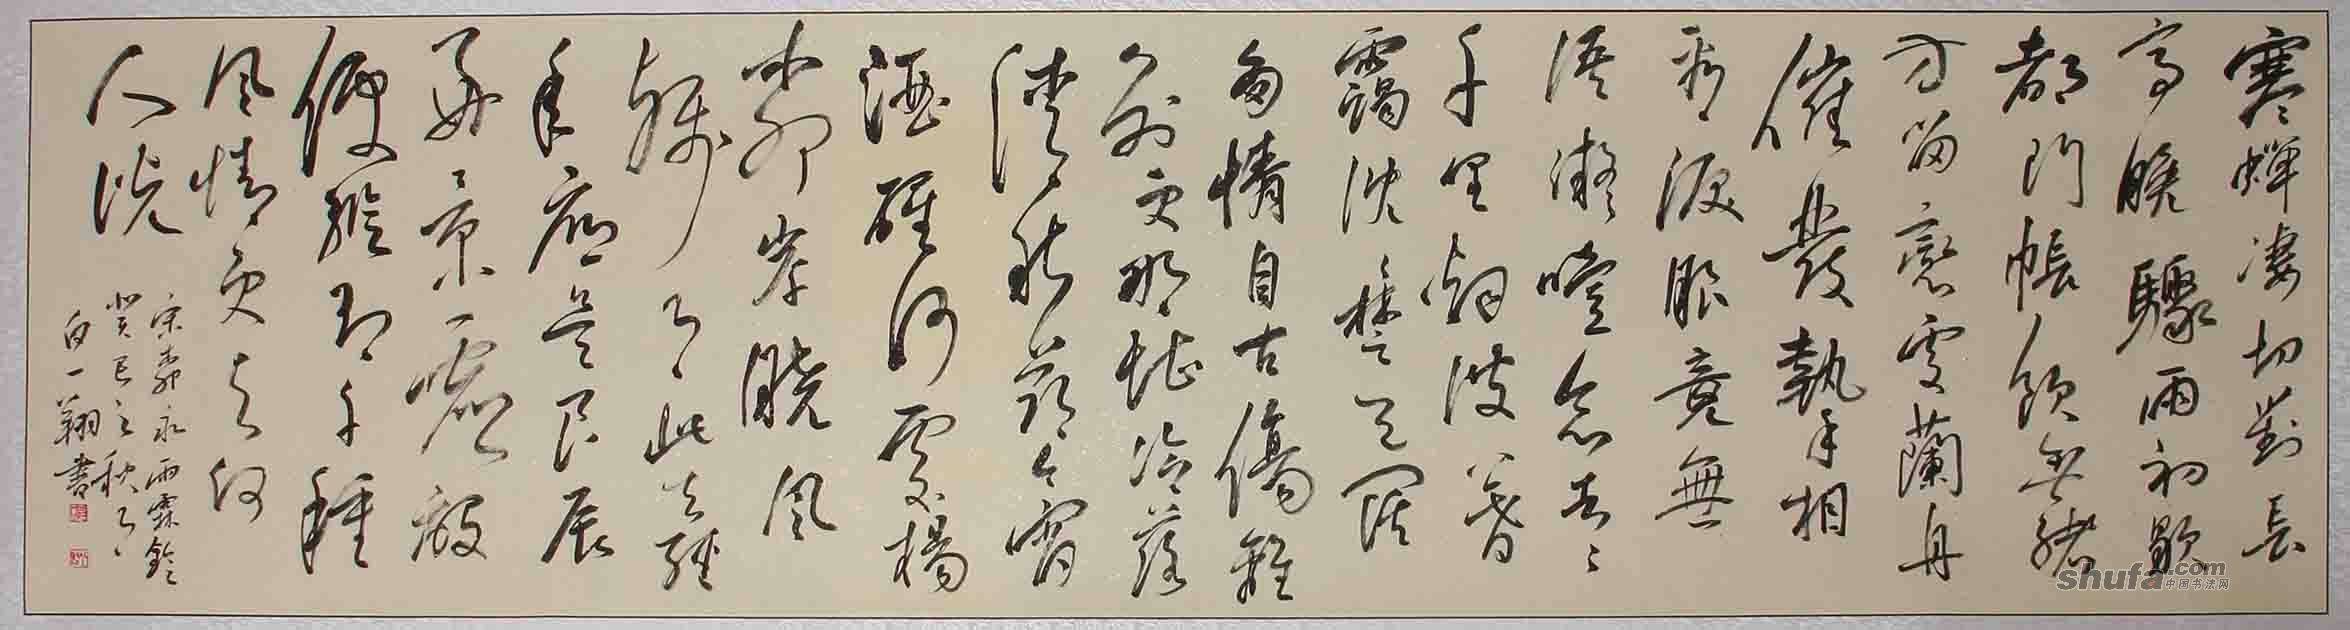 寒蟬淒切對長
亭晚驟雨初歇
都門帳飲無緒
方留戀處蘭舟
催發執手相
看淚眼竟無
語凝噎念去々
千里烟波暮
靄沈々楚天闊
多情自古傷離
別更那堪冷落
清秋節今宵
酒醒何處楊
柳岸曉風
殘月此去經
年應是良辰
好景虛設
便縱有千種
風情更與何
人說
宋柳永雨霖鈴
癸巳之秋月
白一翔書
shufa.com
中国书法网